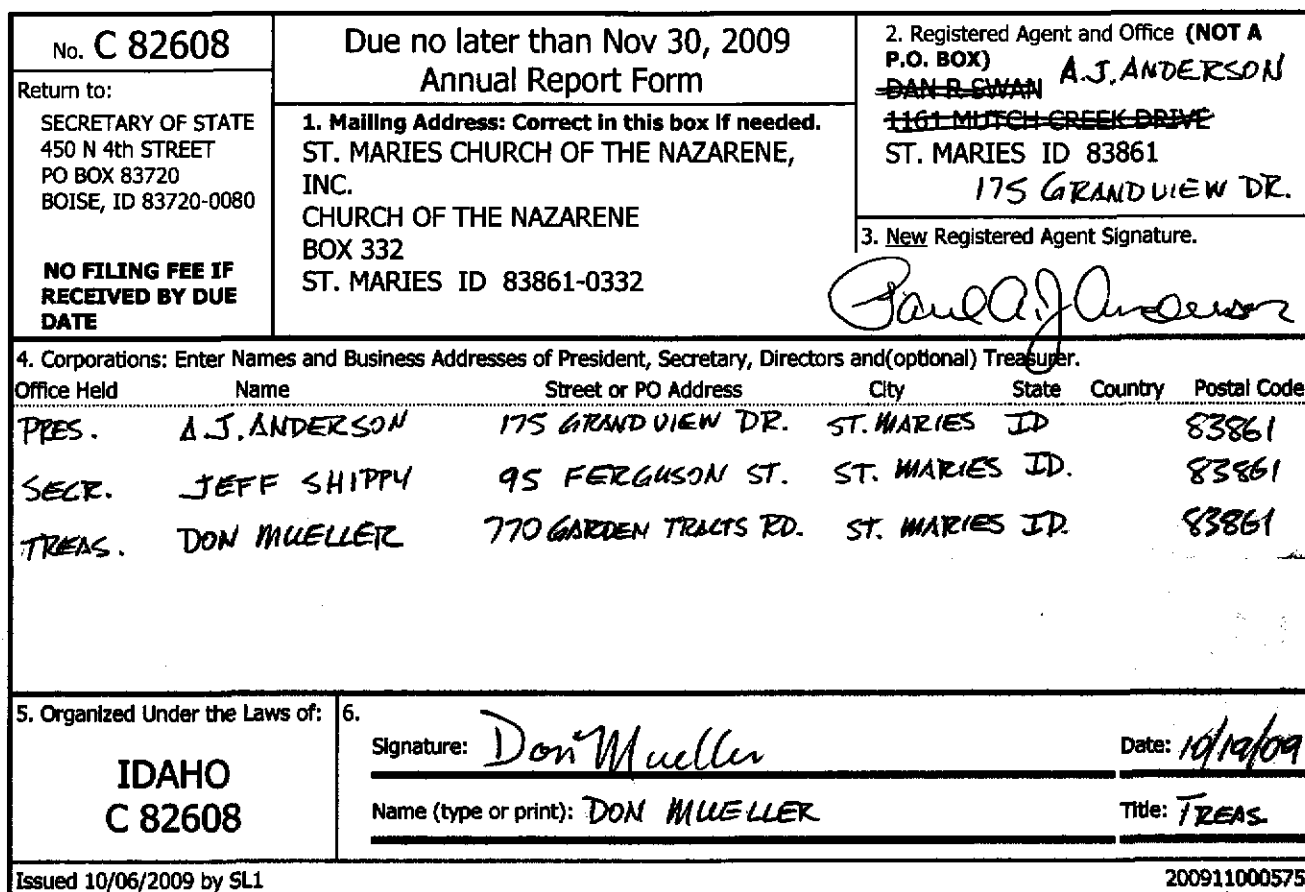 No. C 82608
Return to:
SECRETARY OF STATE
450 N 4th STREET
PO BOX 83720
BOISE, ID 83720-0080
NO FILING FEE IF
RECEIVED BY DUE
DATE
Due no later than Nov 30, 2009
Annual Report Form
1. Mailing Address: Correct in this box if needed.
ST. MARIES CHURCH OF THE NAZARENE,
INC.
CHURCH OF THE NAZARENE
BOX 332
ST. MARIES ID 83861-0332
2. Registered Agent and Office (NOT A
P.O. BOX)
A.J. ANDERSON
DAN R SWAN
1161 MUTCH CREEK DRIVE
ST. MARIES ID 83861
175 GRANDVIEW DR.
3. New Registered Agent Signature.
Paul A.J. Anderson
4. Corporations: Enter Names and Business Addresses of President, Secretary, Directors and(optional) Treasurer.
Office Held Name Street or PO Address City State Country Postal Code
PRES. A.J. ANDERSON 175 GRANDVIEW DR. ST. MARIES ID 83861
SECR. JEFF SHIPPY 95 FERGUSON ST. ST. MARIES ID. 83861
TREAS. DON MUELLER 770 GARDEN TRACTS RD. ST. MARIES ID. 83861
5. Organized Under the Laws of:
IDAHO
C 82608
6.
Signature: Don Mueller Date: 10/19/09
Name (type or print): DON MUELLER Title: TREAS.
Issued 10/06/2009 by SL1 200911000575